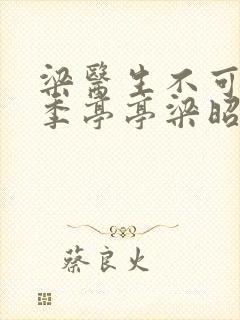 梁醫生不可
季亭亭梁昭
蔡良火